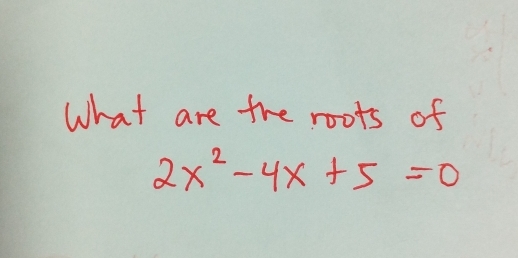 What are the roots of
2x² - 4x + 5 = 0